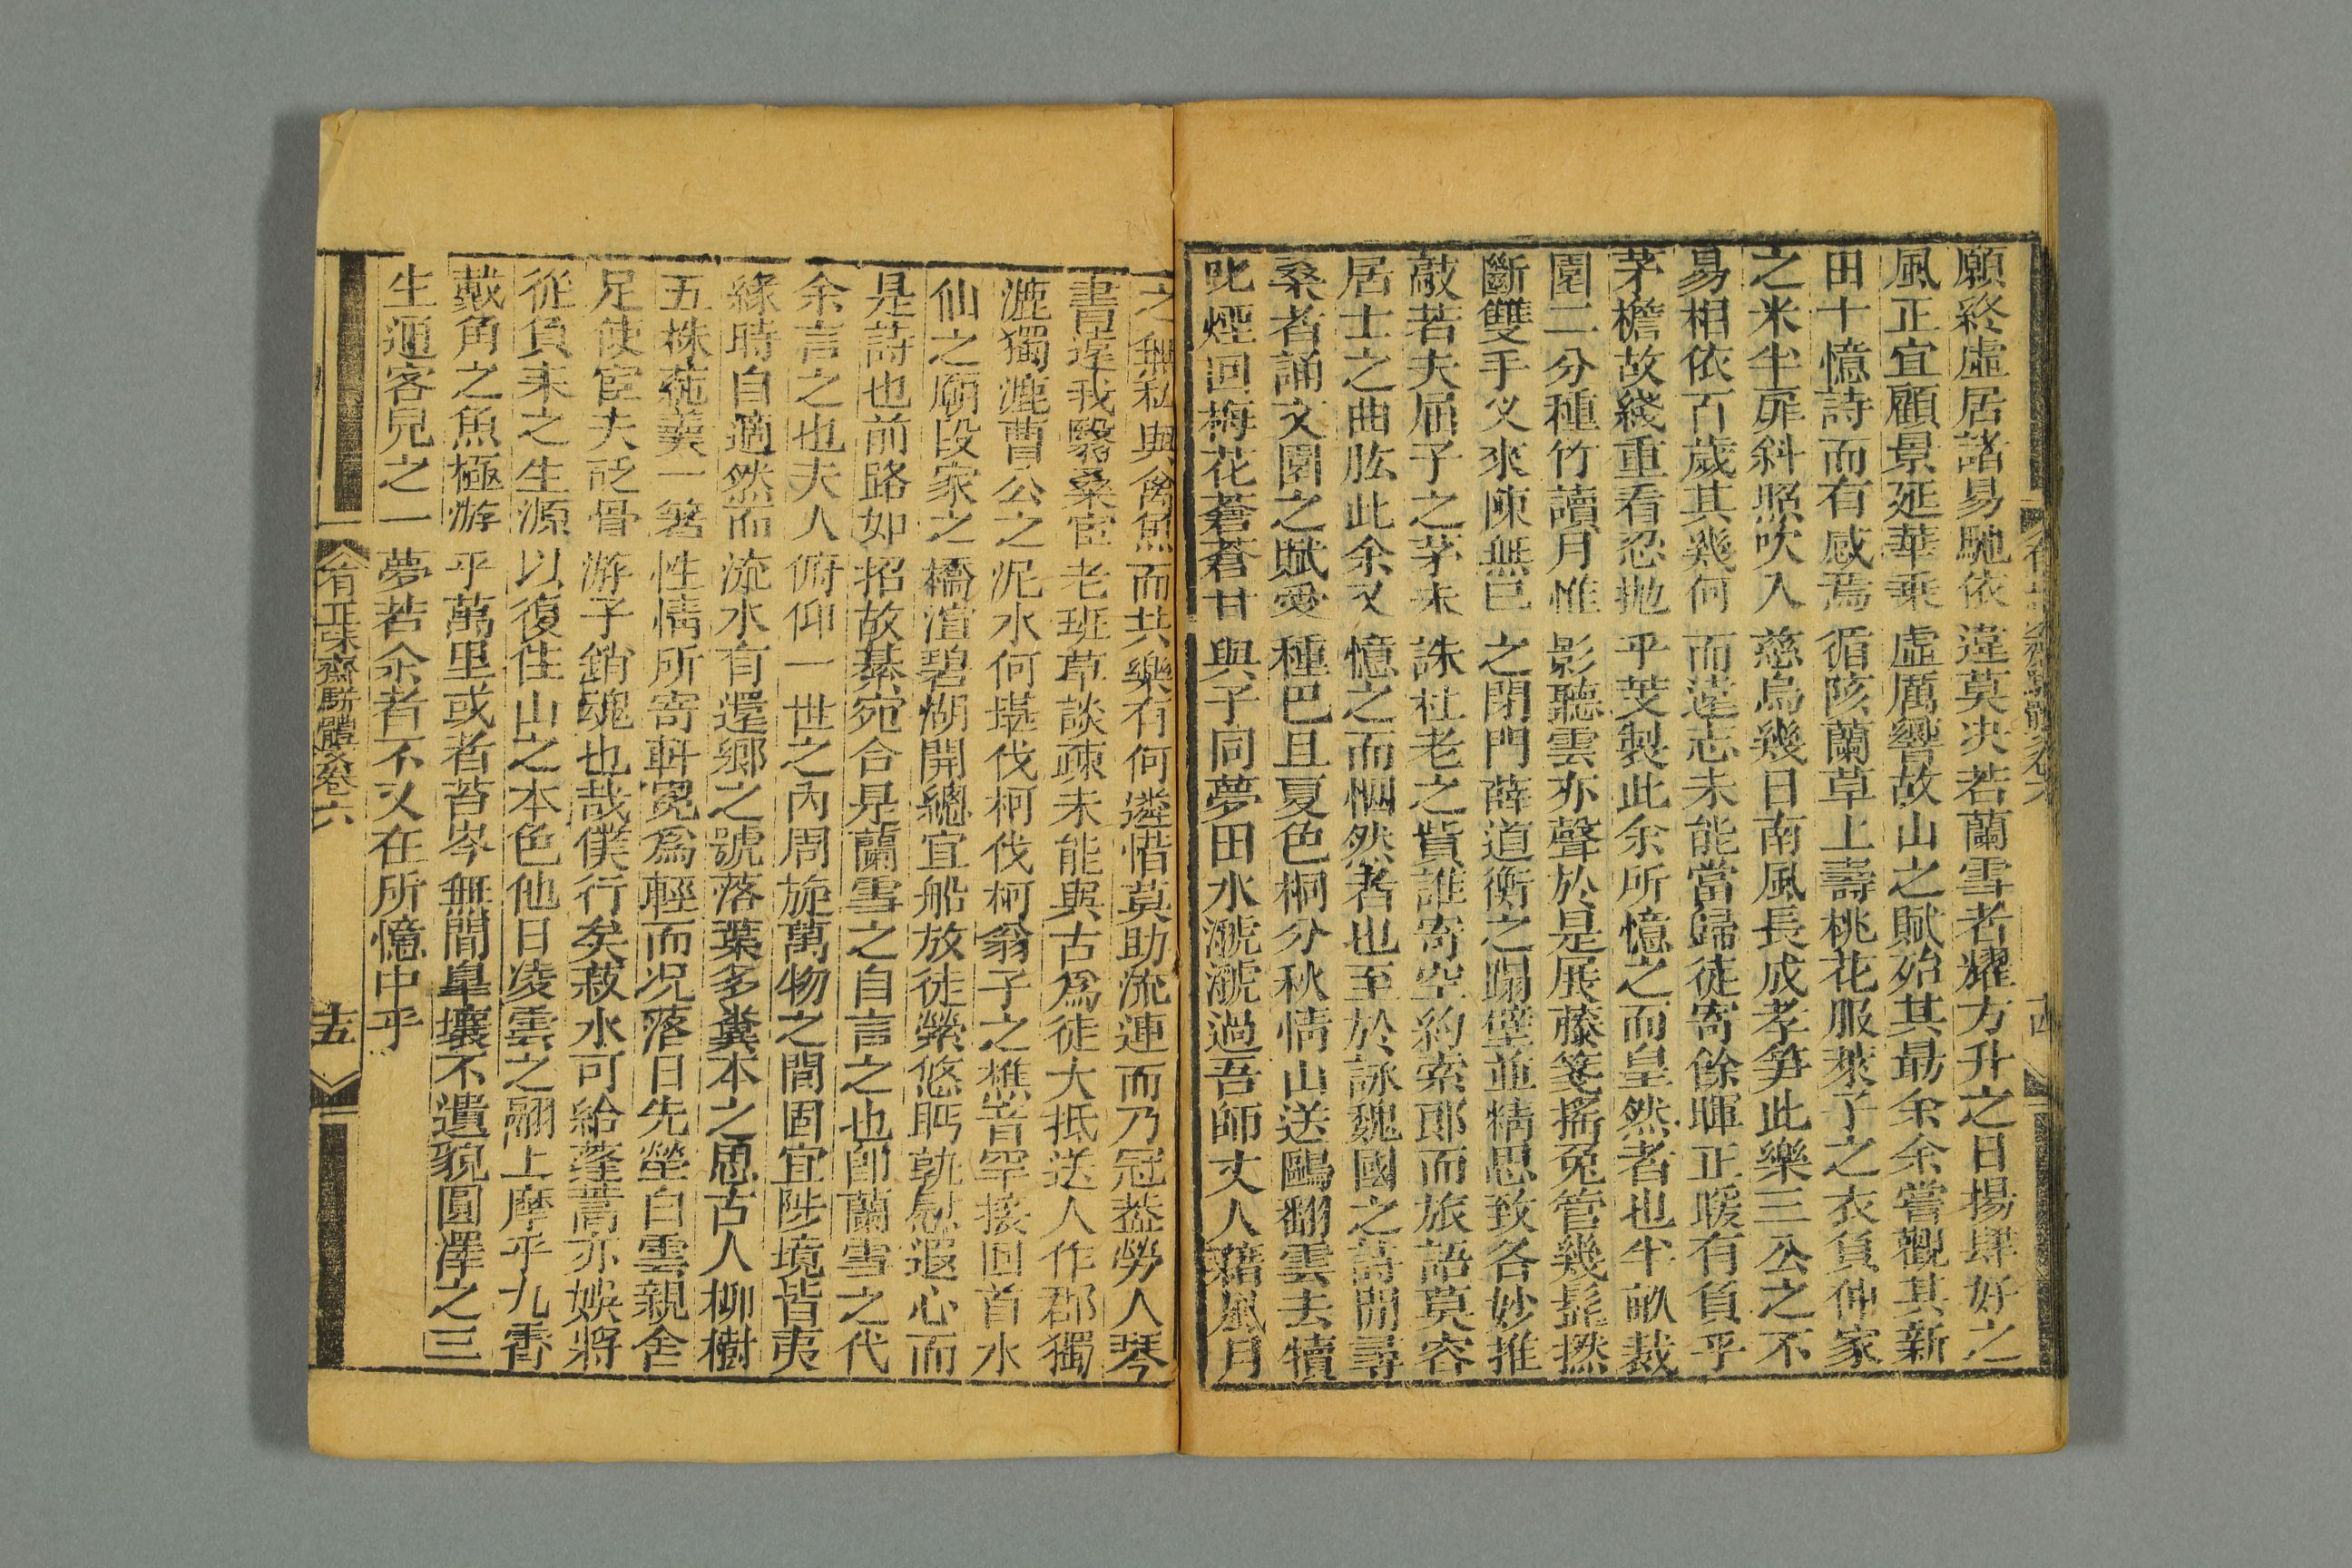 願終虛居諸易馳依違莫決若蘭雪者耀方升之日揚肆好之
風正宜顧景延華乘虛厲響故山之賦殆其最余余嘗觀其新
田十憶詩而有感焉循陔蘭草上壽桃花服萊子之衣負仲家
之米半扉斜照吹入慈烏幾日南風長成孝笋此樂三公之不
易相依百歲其幾何而達志未能當歸徒寄餘暉正暖有負乎
茅檐故綫重看忍拋乎芰製此余所憶之而皇然者也半畝裁
園二分種竹讀月惟影聽雲亦聲於是展藤箋搖兔管幾髭撚
斷雙手义來陳無已之閉門薛道衡之蹋壁並精思致各妙推
敲若夫屈子之茅未誅杜老之貲誰寄空約索郎而旅語莫容
居士之曲肱此余又憶之而惘然者也至於詠魏國之詩閒尋
桑者誦文園之賦愛種巴且夏色桐分秋情山送鷗翻雲去犢
叱煙回梅花蒼蒼甘與子同夢田水㶁㶁過吾師丈人藉風月
之無私與禽魚而共樂有何遴惜莫助流連而乃冠葢勞人琴
書違我翳桑宦老班草談疎未能與古爲徒大抵送人作郡獨
漉獨漉曹公之泥水何堪伐柯伐柯翁子之樵音罕接回首水
仙之廟段家之橋渲碧湖開總宜船放徒縈悠眄孰慰遐心而
是詩也前路如招故棊宛合是蘭雪之自言之也卽蘭雪之代
余言之也夫人俯仰一世之內周旋萬物之間固宜陟境皆夷
緣時自適然而流水有還鄉之號落葉多糞本之思古人柳樹
五株蒓羹一箸性情所寄軒冕爲輕而况落日先塋白雲親舍
足使宦夫砭骨游子銷魂也哉僕行矣菽水可給蓬蒿亦娛將
從負耒之生源以復住山之本色他日凌雲之翮上摩乎九霄
戴角之魚極游乎萬里或者苔岑無間皐壤不遺貌圓澤之三
生通客兒之一夢若余者不又在所憶中乎
有正味齋駢體文卷六 十五